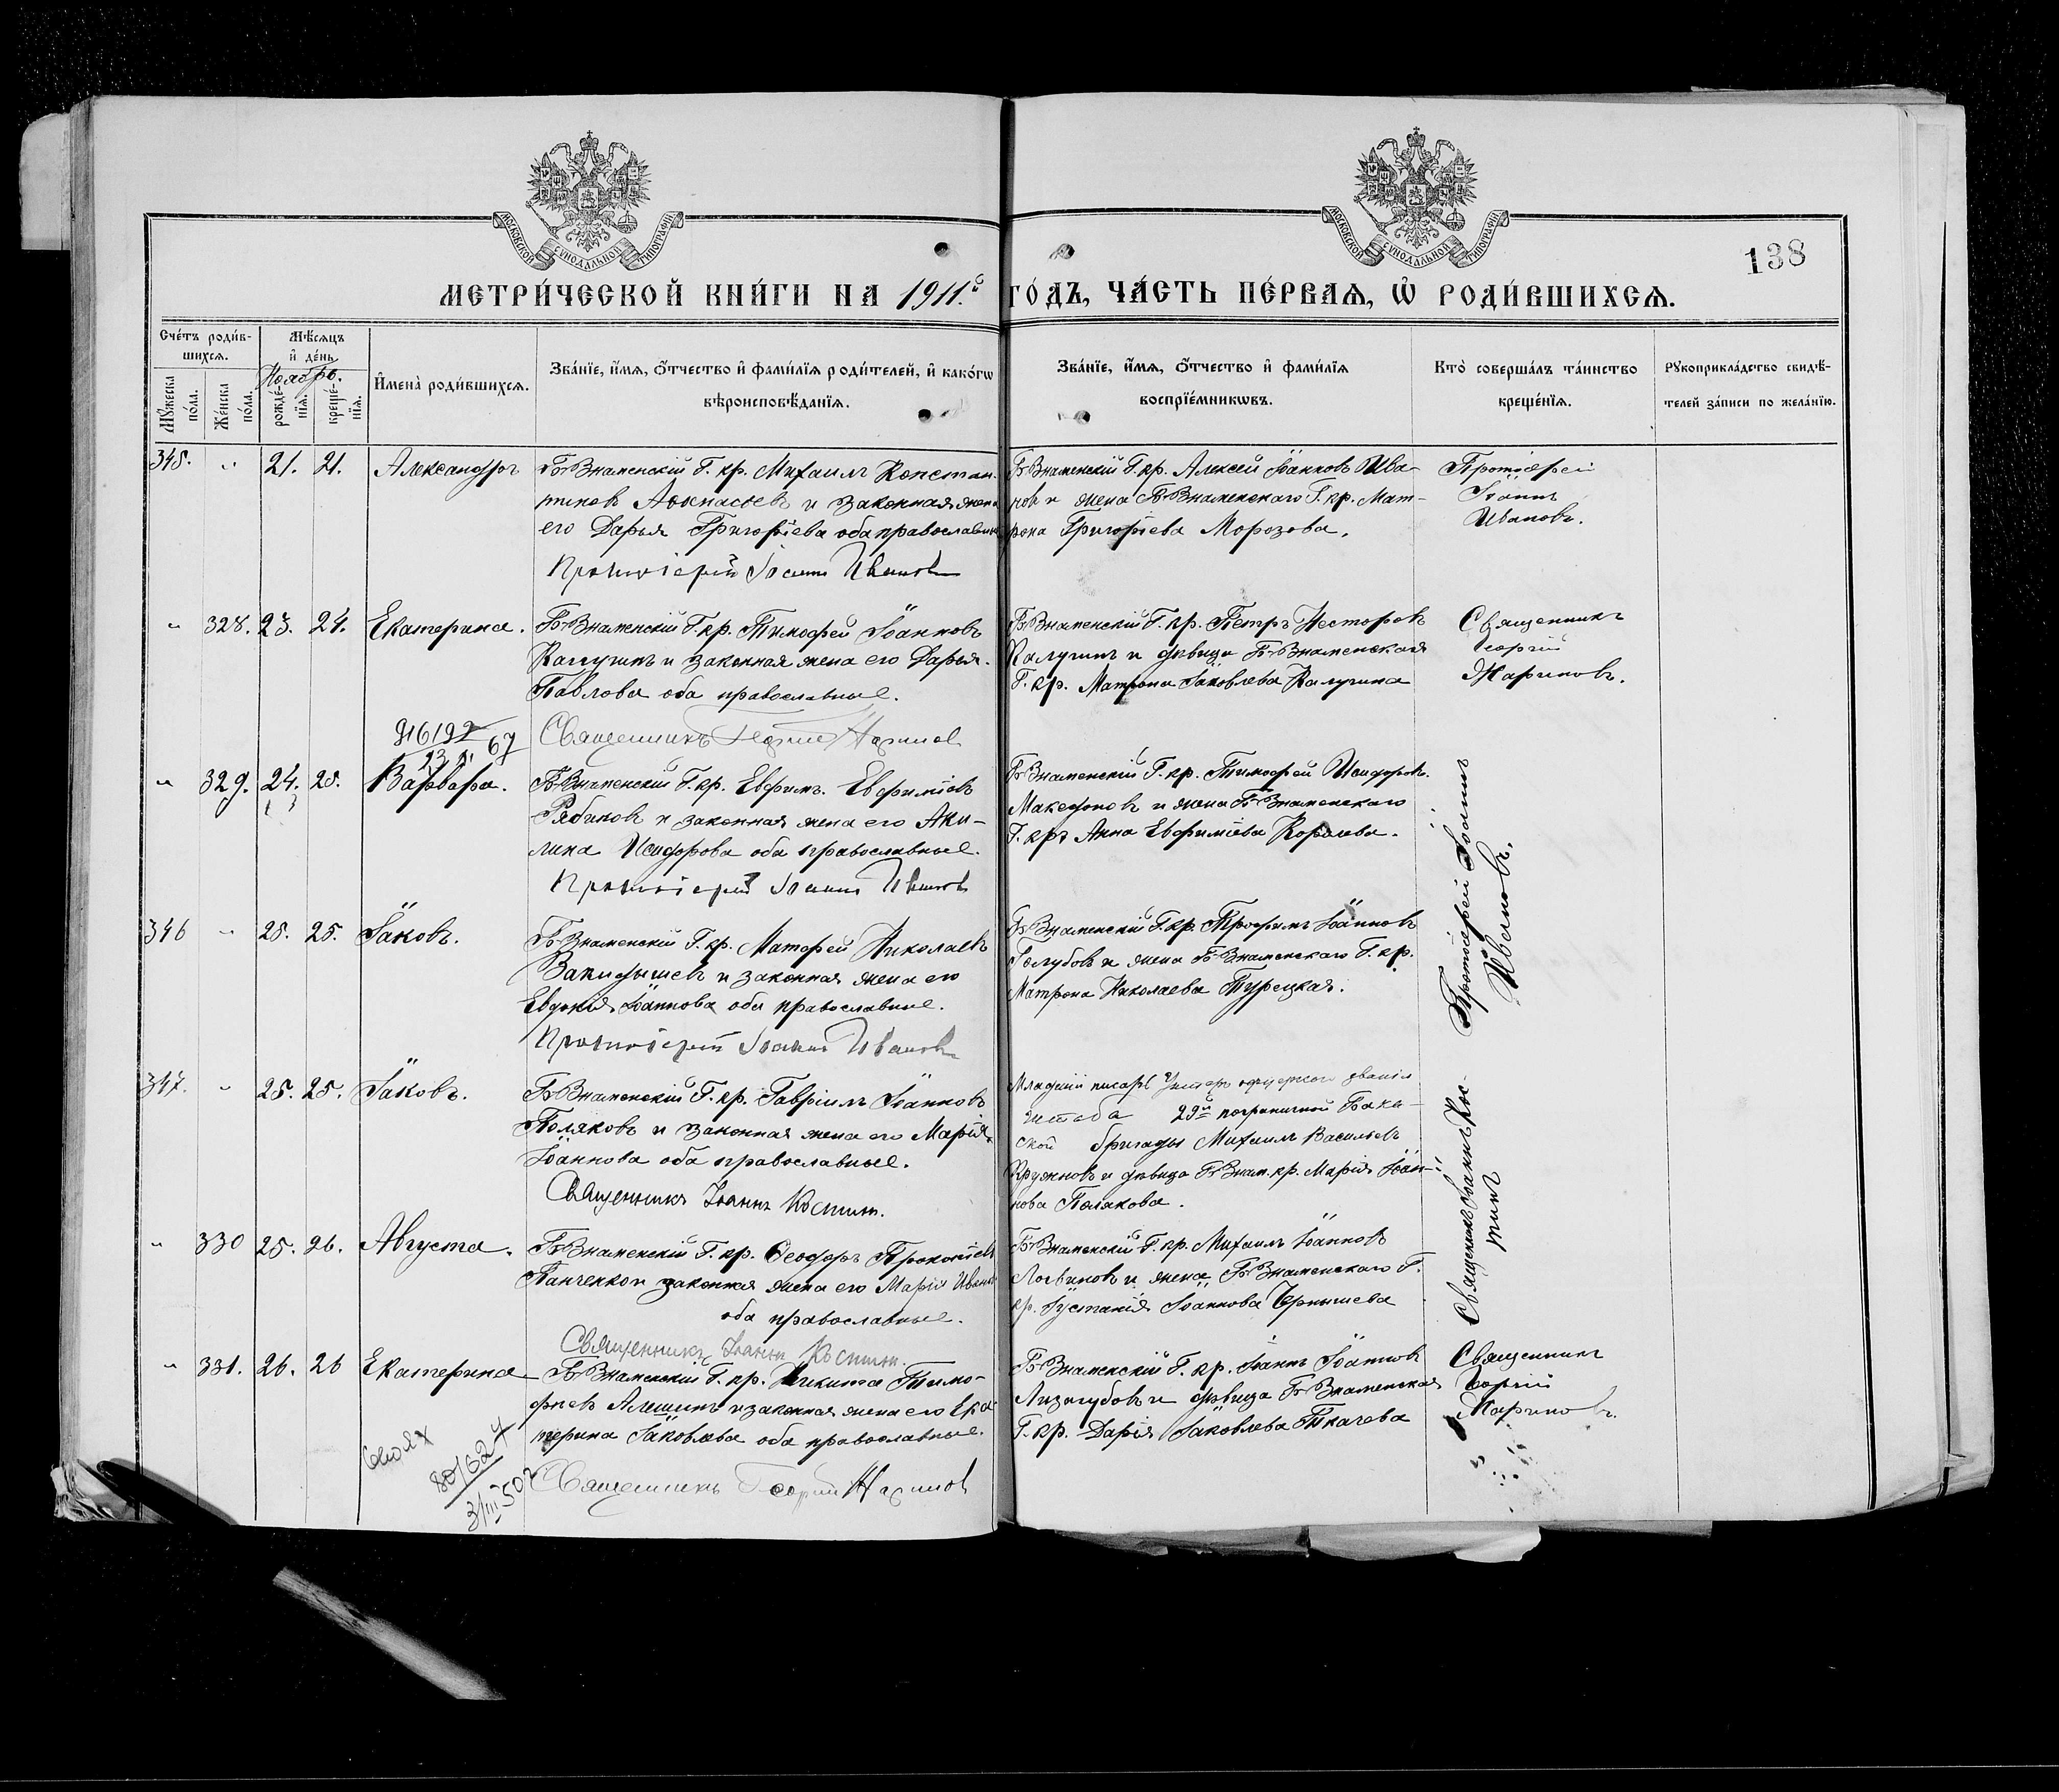 МОСКОВСКОЙ СѴНОДАЛЬНОЙ ТИПОГРАФІИ
МОСКОВСКОЙ СѴНОДАЛЬНОЙ ТИПОГРАФІИ
138
МЕТРИ́ЧЕСКОЙ КНИ́ГИ НА 1911.й ГО́ДЪ, ЧА́СТЬ ПЕ́РВАѦ, Ѡ҆ РОДИ́ВШИХСѦ.
Сче́тъ роди́в-
шихсѧ.
Мꙋ́жеска по́ла.
Же́нска по́ла.
Мѣ́сѧцъ
и҆ де́нь
Ноябрь.
рожде́-
нїѧ.
креще́-
нїѧ.
И҆мена̀ роди́вшихсѧ.
Зва́нїе, и҆́мѧ, ѻ҆́тчество и҆ фами́лїѧ роди́телей, и҆ како́гѡ
вѣроисповѣ́данїѧ.
Зва́нїе, и҆́мѧ, ѻ҆́тчество и҆ фами́лїѧ
воспрїе́мникѡвъ.
Кто̀ соверша́лъ та́инство
креще́нїѧ.
Рꙋкоприкла́дство свидѣ́-
телей за́писи по жела́нїю.
345. " 21. 21. Александръ
Б-Знаменскій Г. кр. Михаилъ Констан-
тиновъ Аѳанасьевъ и законная жена
его Дарья Григоріева оба православные
Протоіерей Іоаннъ Ивановъ
Б-Знаменскій Г. кр. Алексей Іоанновъ Ива-
новъ и жена Б-Знаменскаго Г. кр. Мат-
рона Григоріева Морозова.
Протоіерей
Іоаннъ
Ивановъ.
" 328. 23. 24. Екатерина.
Б-Знаменскій Г. кр. Тимофей Іоанновъ
Калугинъ и законная жена его Дарья
Павлова оба православные.
Священникъ Георгій Мариновъ
Б-Знаменскій Г. кр. Петръ Несторовъ
Калугинъ и дѣвица Б-Знаменская
Г. кр. Матрона Іаковлева Калугина
Священникъ
Георгій
Мариновъ.
67
" 329. 24. 25. Варвара.
Б-Знаменскій Г. кр. Евфимъ Евфиміевъ
Рябиковъ и законная жена его Аки-
лина Исидорова оба православные.
Протоіерей Іоаннъ Ивановъ
Б-Знаменскій Г. кр. Тимофей Исидоровъ
Македоновъ и жена Б-Знаменскаго
Г. кр. Анна Евфиміева Королева.
Протоіерей Іоаннъ
Ивановъ.
346 " 25. 25. Іаковъ.
Б-Знаменскій Г. кр. Матфей Николаевъ
и законная жена его
Евдокія Іоаннова оба православные.
Протоіерей Іоаннъ Ивановъ
Б-Знаменскій Г. кр. Трофимъ Іоанновъ
Голубовъ и жена Б-Знаменскаго Г. кр.
Матрона Николаева Турецкая.
347. " 25. 25. Іаковъ.
Б-Знаменскій Г. кр. Гавріилъ Іоанновъ
Поляковъ и законная жена его Марія
Іоаннова оба православные.
Священникъ Іоаннъ Костин.
Младшій писарь Унтеръ офицерскаго званія
штаба 29й пограничной Бакин-
ской бригады Михаилъ Васильевъ
Кружновъ и дѣвица Б-Знам. кр. Марія Іоан-
нова Полякова.
Священникъ Іоаннъ Кос-
тинъ
" 330 25. 26. Августа.
Б-Знаменскій Г. кр. Ѳеодоръ Прокопіевъ
Панченко и законная жена его Марія Иванова
оба православные.
Священникъ Іоаннъ Костин.
Б-Знаменскій Г. кр. Михаилъ Іоанновъ
Логвиновъ и жена Б-Знаменскаго Г.
кр. Іустинія Іоаннова Чернышева
" 331. 26. 26 Екатерина
Б-Знаменскій Г. кр. Никита Тимо-
феевъ Алешинъ и законная жена его Ека-
терина Іаковлева оба православные.
Священникъ Георгій Мариновъ
Б-Знаменскій Г. кр. Іоаннъ Іоанновъ
Лизогубовъ и дѣвица Б-Знаменская
Г. кр. Дарія Іаковлева Ткачева
Священникъ
Георгій
Мариновъ.